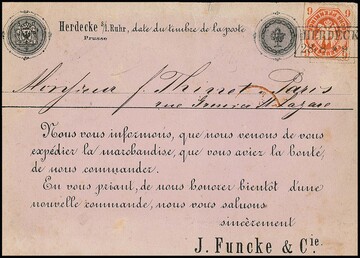 Herdecke a/d. Ruhr, date du timbre de la poste
Prusse
HERDECKE
Monsieur J. Thinet Paris
rue
Nous vous informons, que nous venons de vous
expédier la marchandise, que vous aviez la bonté,
de nous commander.
En vous priant, de nous honorer bientôt d'une
nouvelle commande, nous vous saluons
sincèrement
J. Funcke & Cie.